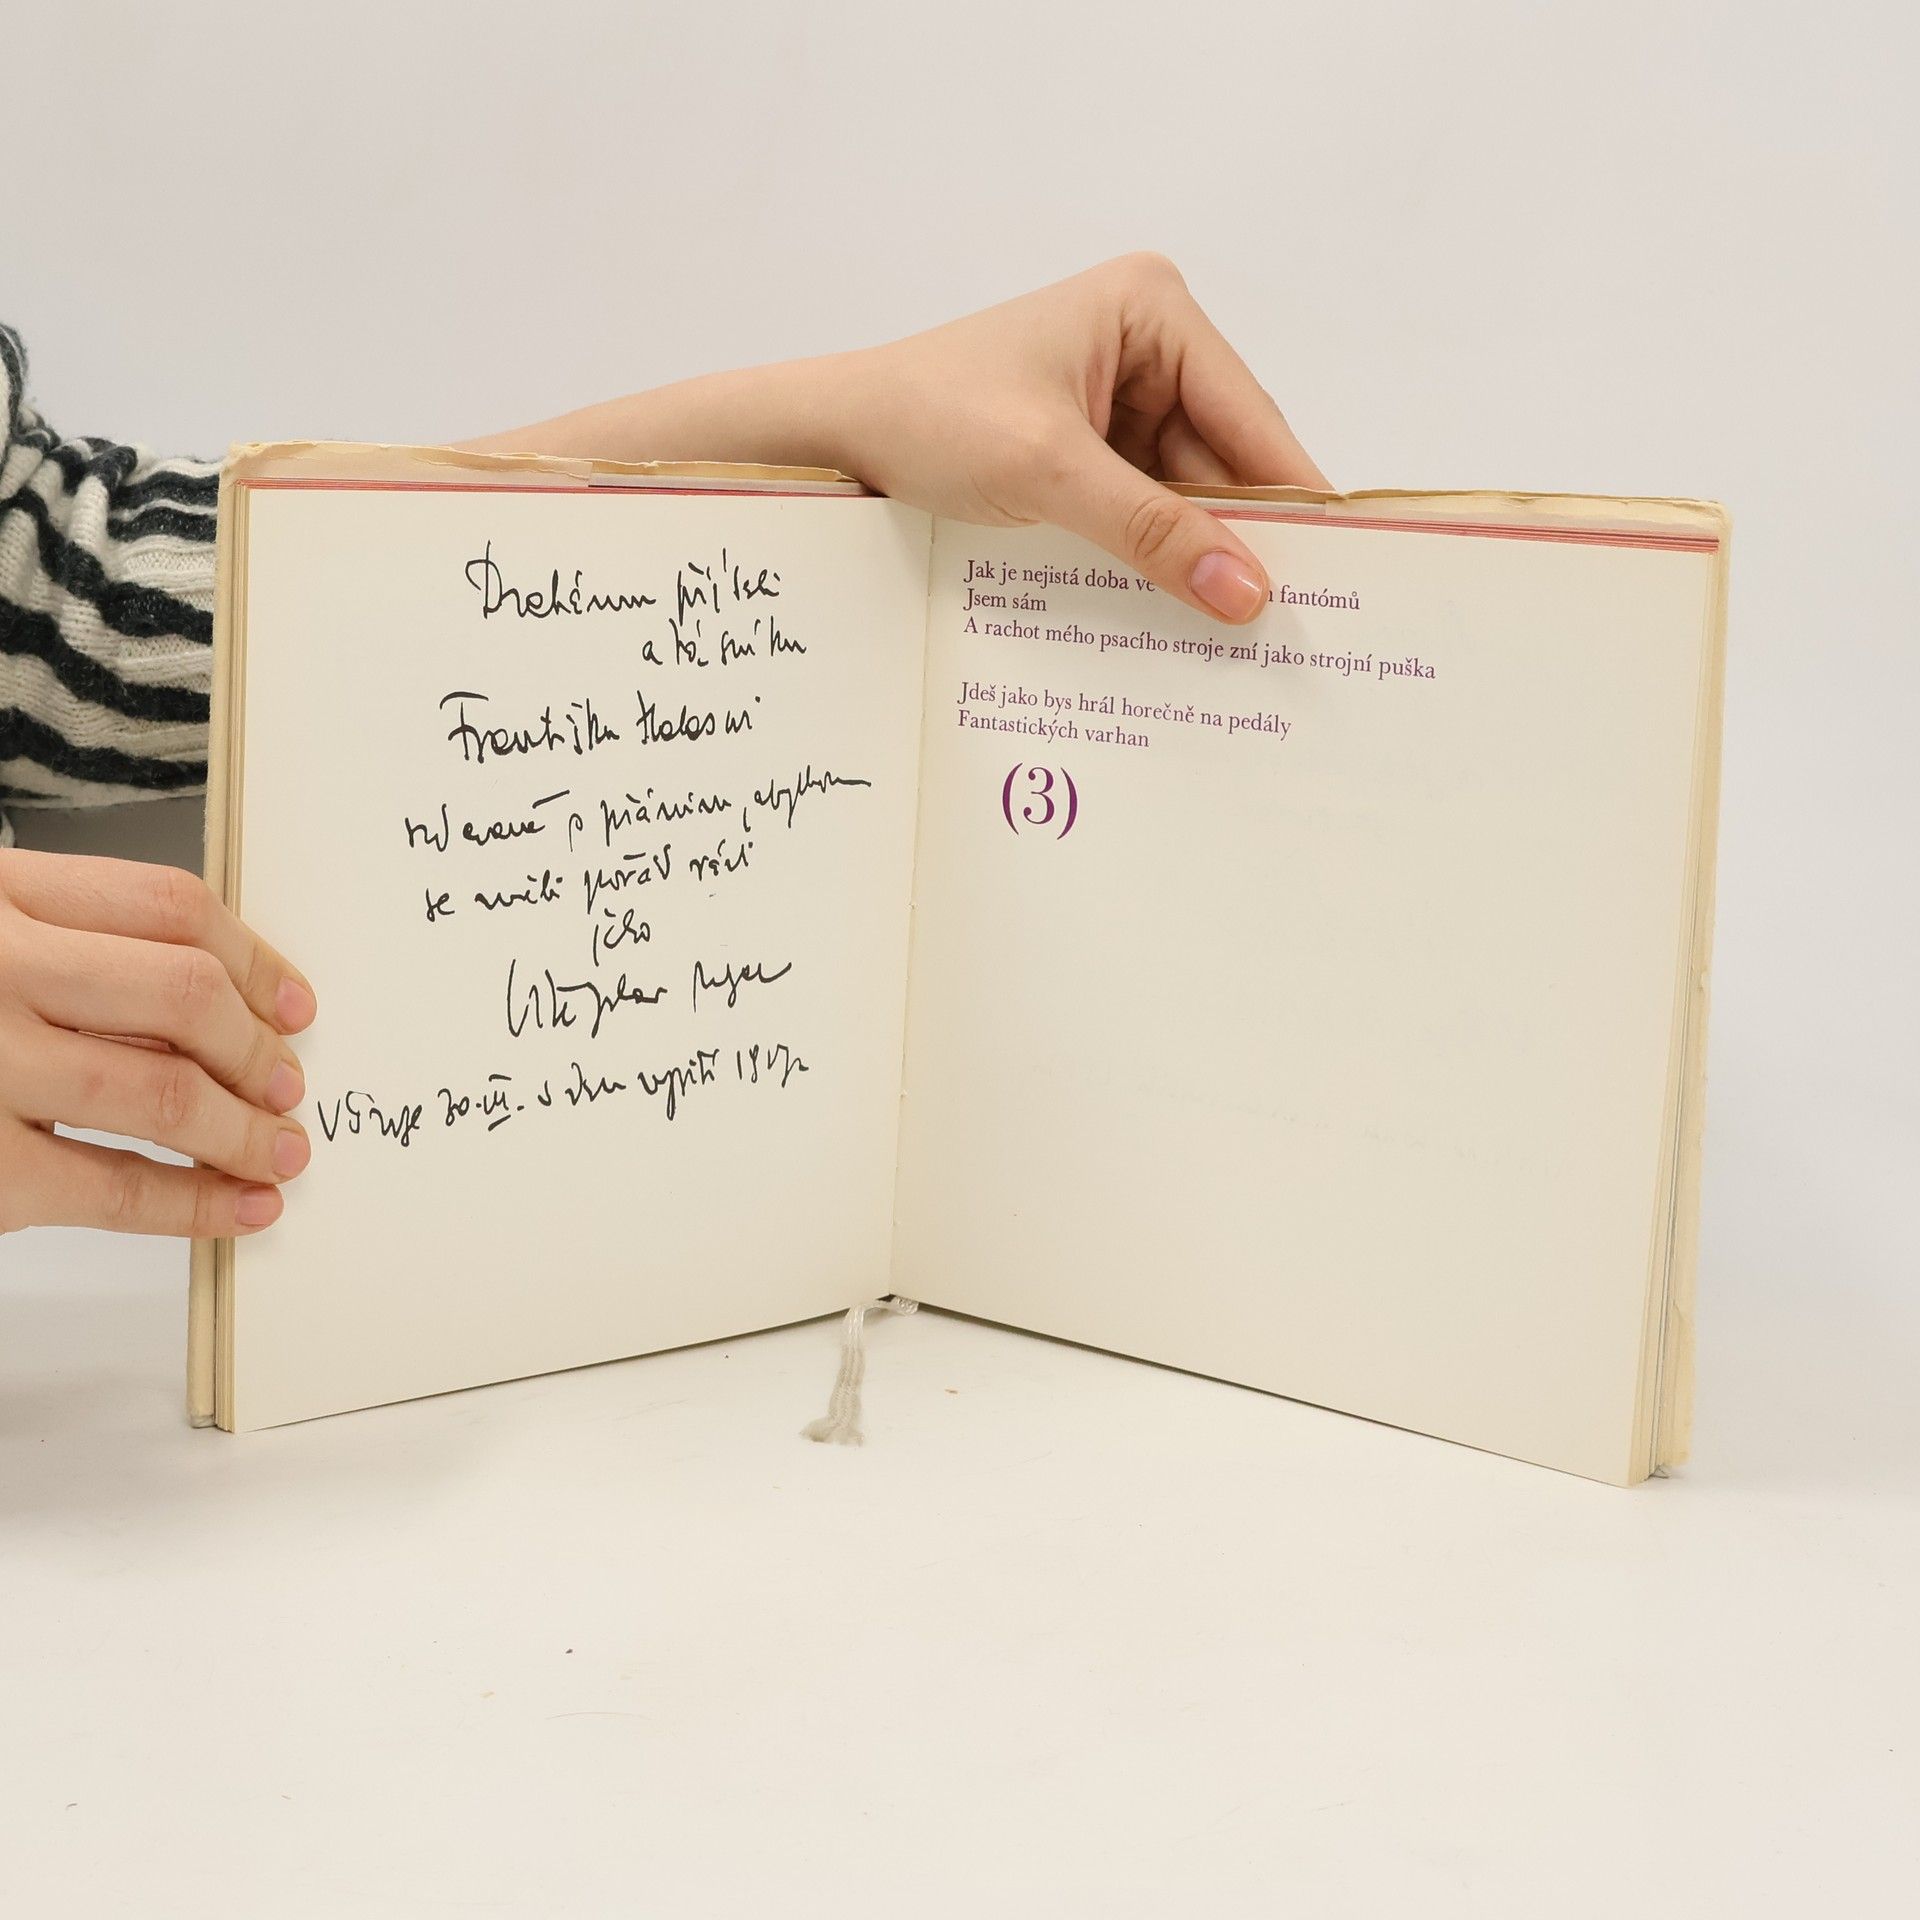 Drahému příteli
a básníku
Františku Halasovi
věnovaně s přáním, abychom
se měli pořád rádi
jeho
Vítězslav Nezval
V Praze 30.III. v den vyjití
Jak je nejistá doba fantómů
Jsem sám
A rachot mého psacího stroje zní jako strojní puška
Jdeš jako bys hrál horečně na pedály
Fantastických varhan
(3)